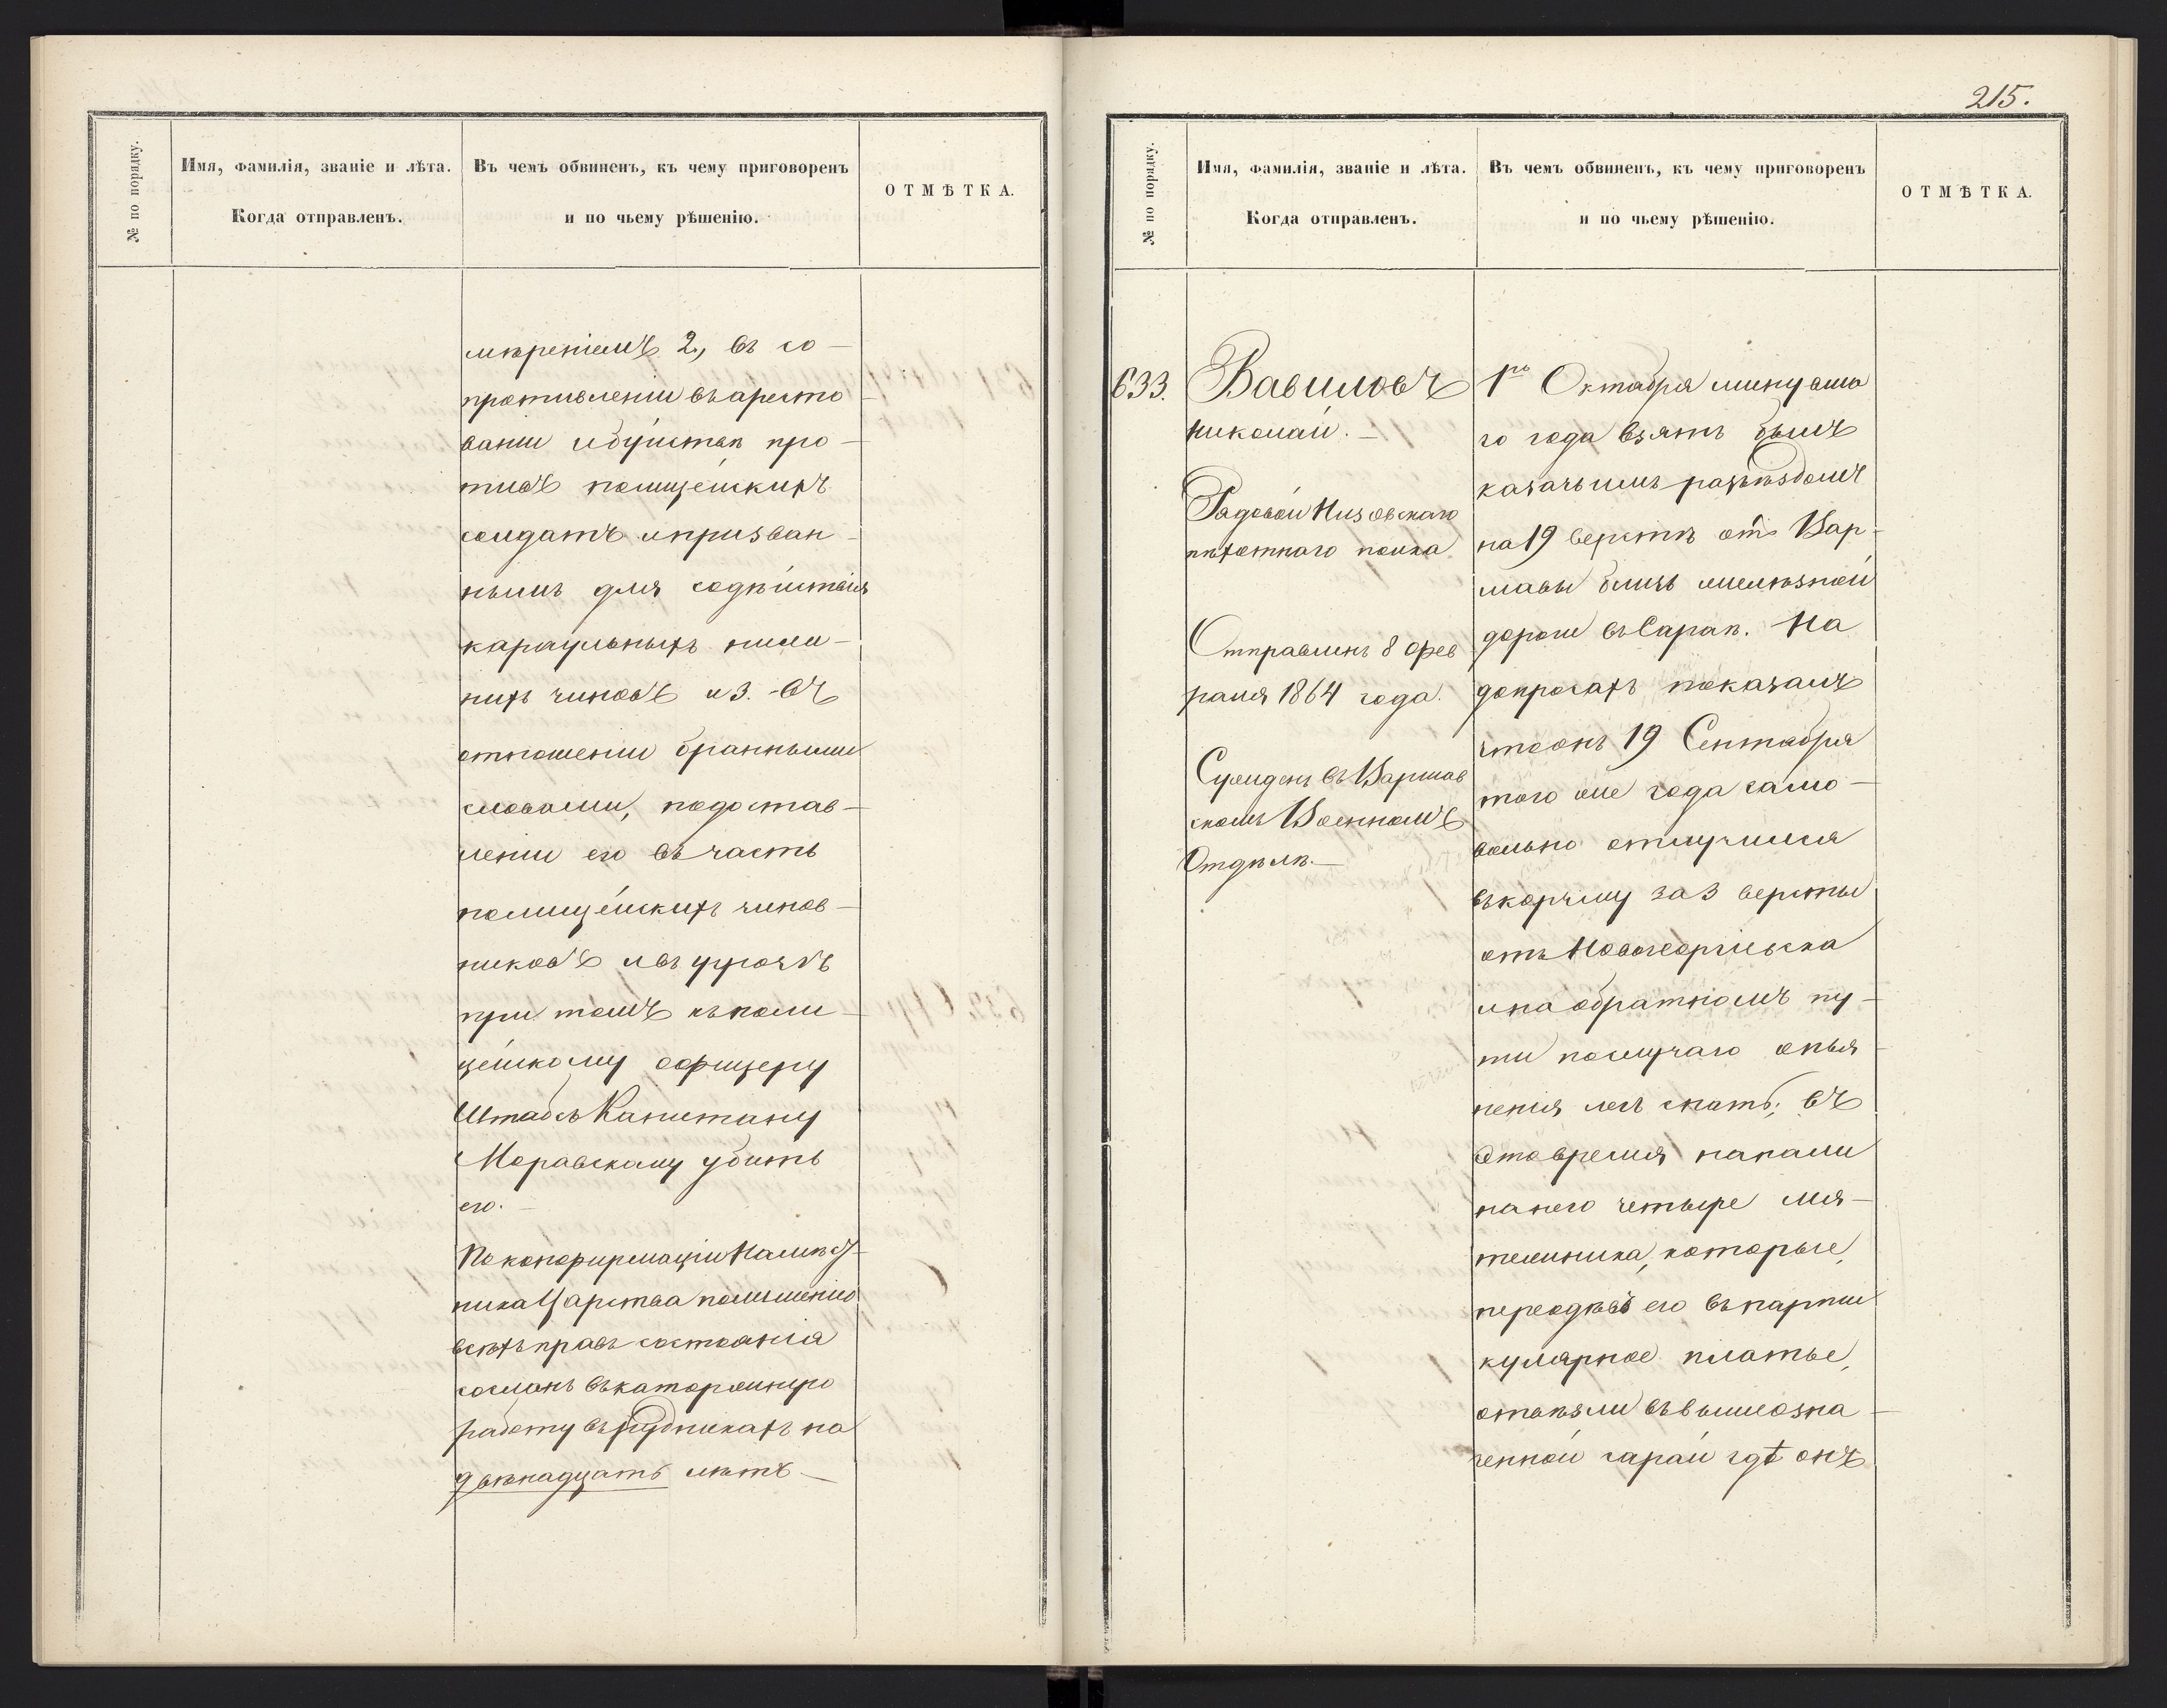 № по порядку.
Имя, фамилія, званіе и лѣта.
Когда отправленъ.
Въ чемъ обвиненъ, къ чему приговоренъ
и по чьему рѣшенію.
ОТМѢТКА.
мѣреніемъ 2, въ со-
противленіи въ аресто
ваніи и буйствѣ про-
тивъ полицейскихъ
солдатъ и призван-
нымъ для содѣйствія
караульныхъ ниж-
нихъ чиновъ и 3. въ
отношеніи бранными
словами, по достав-
леніи его въ часть
полицейскихъ чинов-
никовъ и въ угрозѣ
при томъ къ поли-
цейскому офицеру
Штабсъ Капитану
Моравскому убить
его.-
По конфирмаціи Намѣст-
ника Царства по лишеніи
всѣхъ правъ состоянія
сосланъ въ каторжную
работу въ рудникахъ на
двѣнадцать лѣтъ.-
215.
№ по порядку.
Имя, фамилія, званіе и лѣта.
Когда отправленъ.
Въ чемъ обвиненъ, къ чему приговоренъ
и по чьему рѣшенію.
ОТМѢТКА.
633.
Вавиловъ
Николай.-
Рядовой Низовскаго
пѣхотнаго полка
Отправленъ 8 Фев
раля 1864 года.
Сужденъ въ Варшав
скомъ Военномъ
Отдѣлѣ.-
1го Октября минувша
го года взятъ былъ
казачьимъ разъѣздомъ
на 19 верстѣ отъ Вар-
шавы близь желѣзной
дороги въ Сараѣ. На
допросахъ показалъ
что онъ 19 Сентября
того же года само-
вольно отлучился
въ корчму за 3 версты
отъ Новогеоргіевска
и на обратномъ пу-
ти по случаю опья
ненія легъ спать; въ
это время напали
на него четыре мя-
тежника, которые,
переодѣвъ его въ парти
кулярное платье,
отвѣзли въ вышеозна-
ченной сарай гдѣ онъ